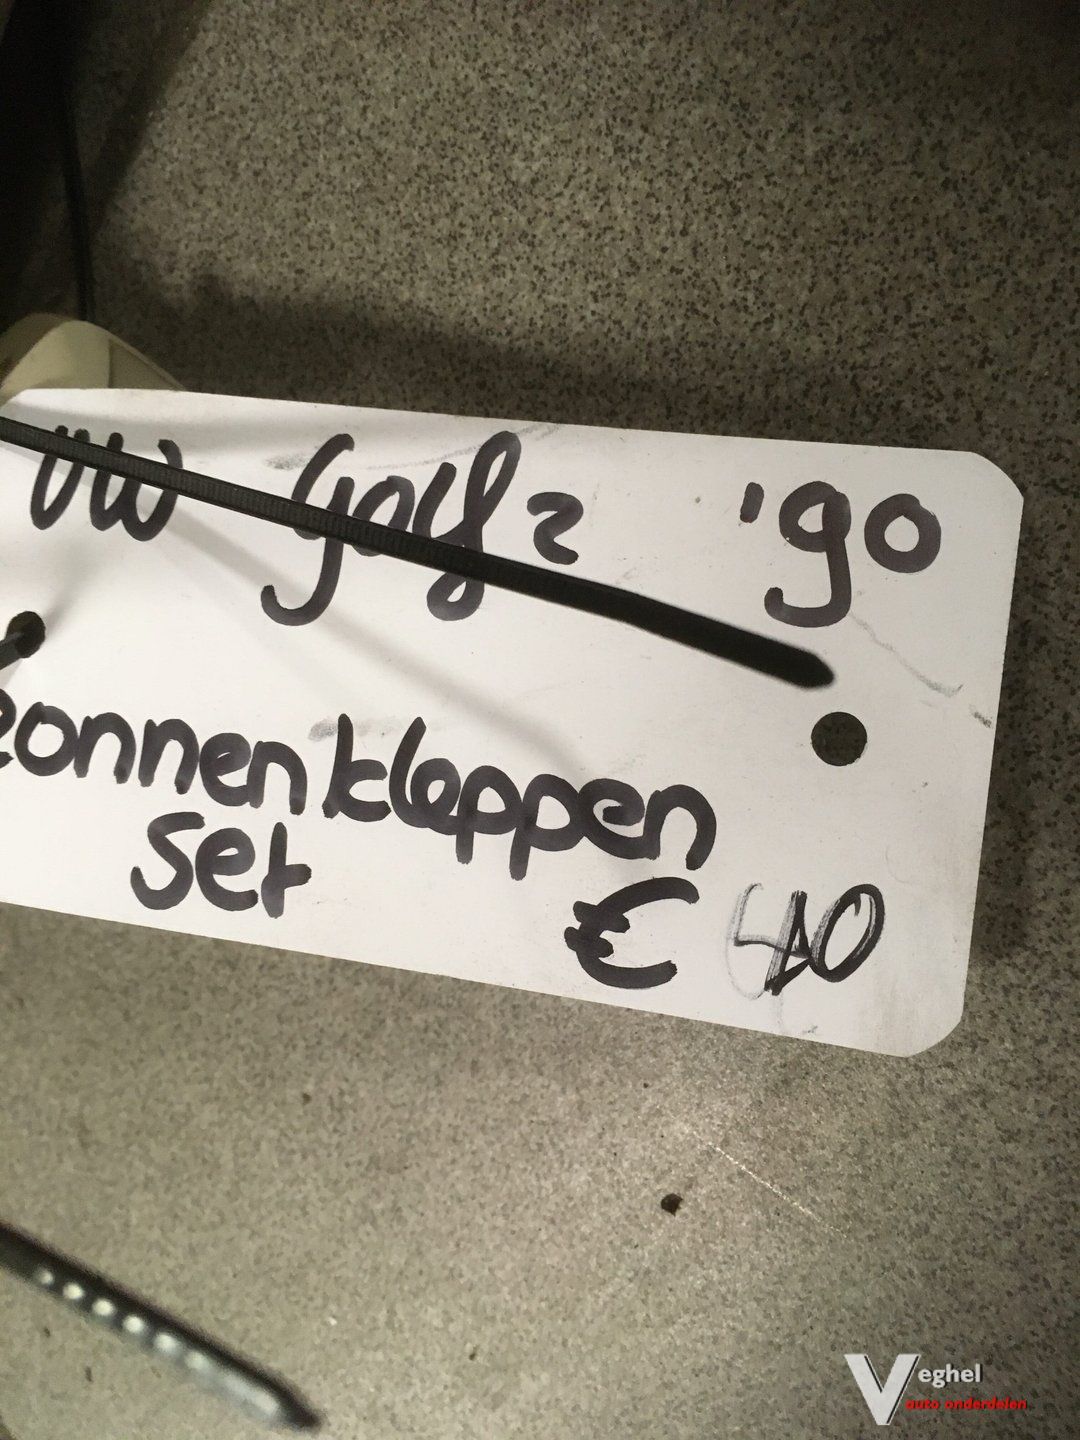 VW Golf 2 '90
zonnenkleppen
set
€ 40
Veghel
auto onderdelen